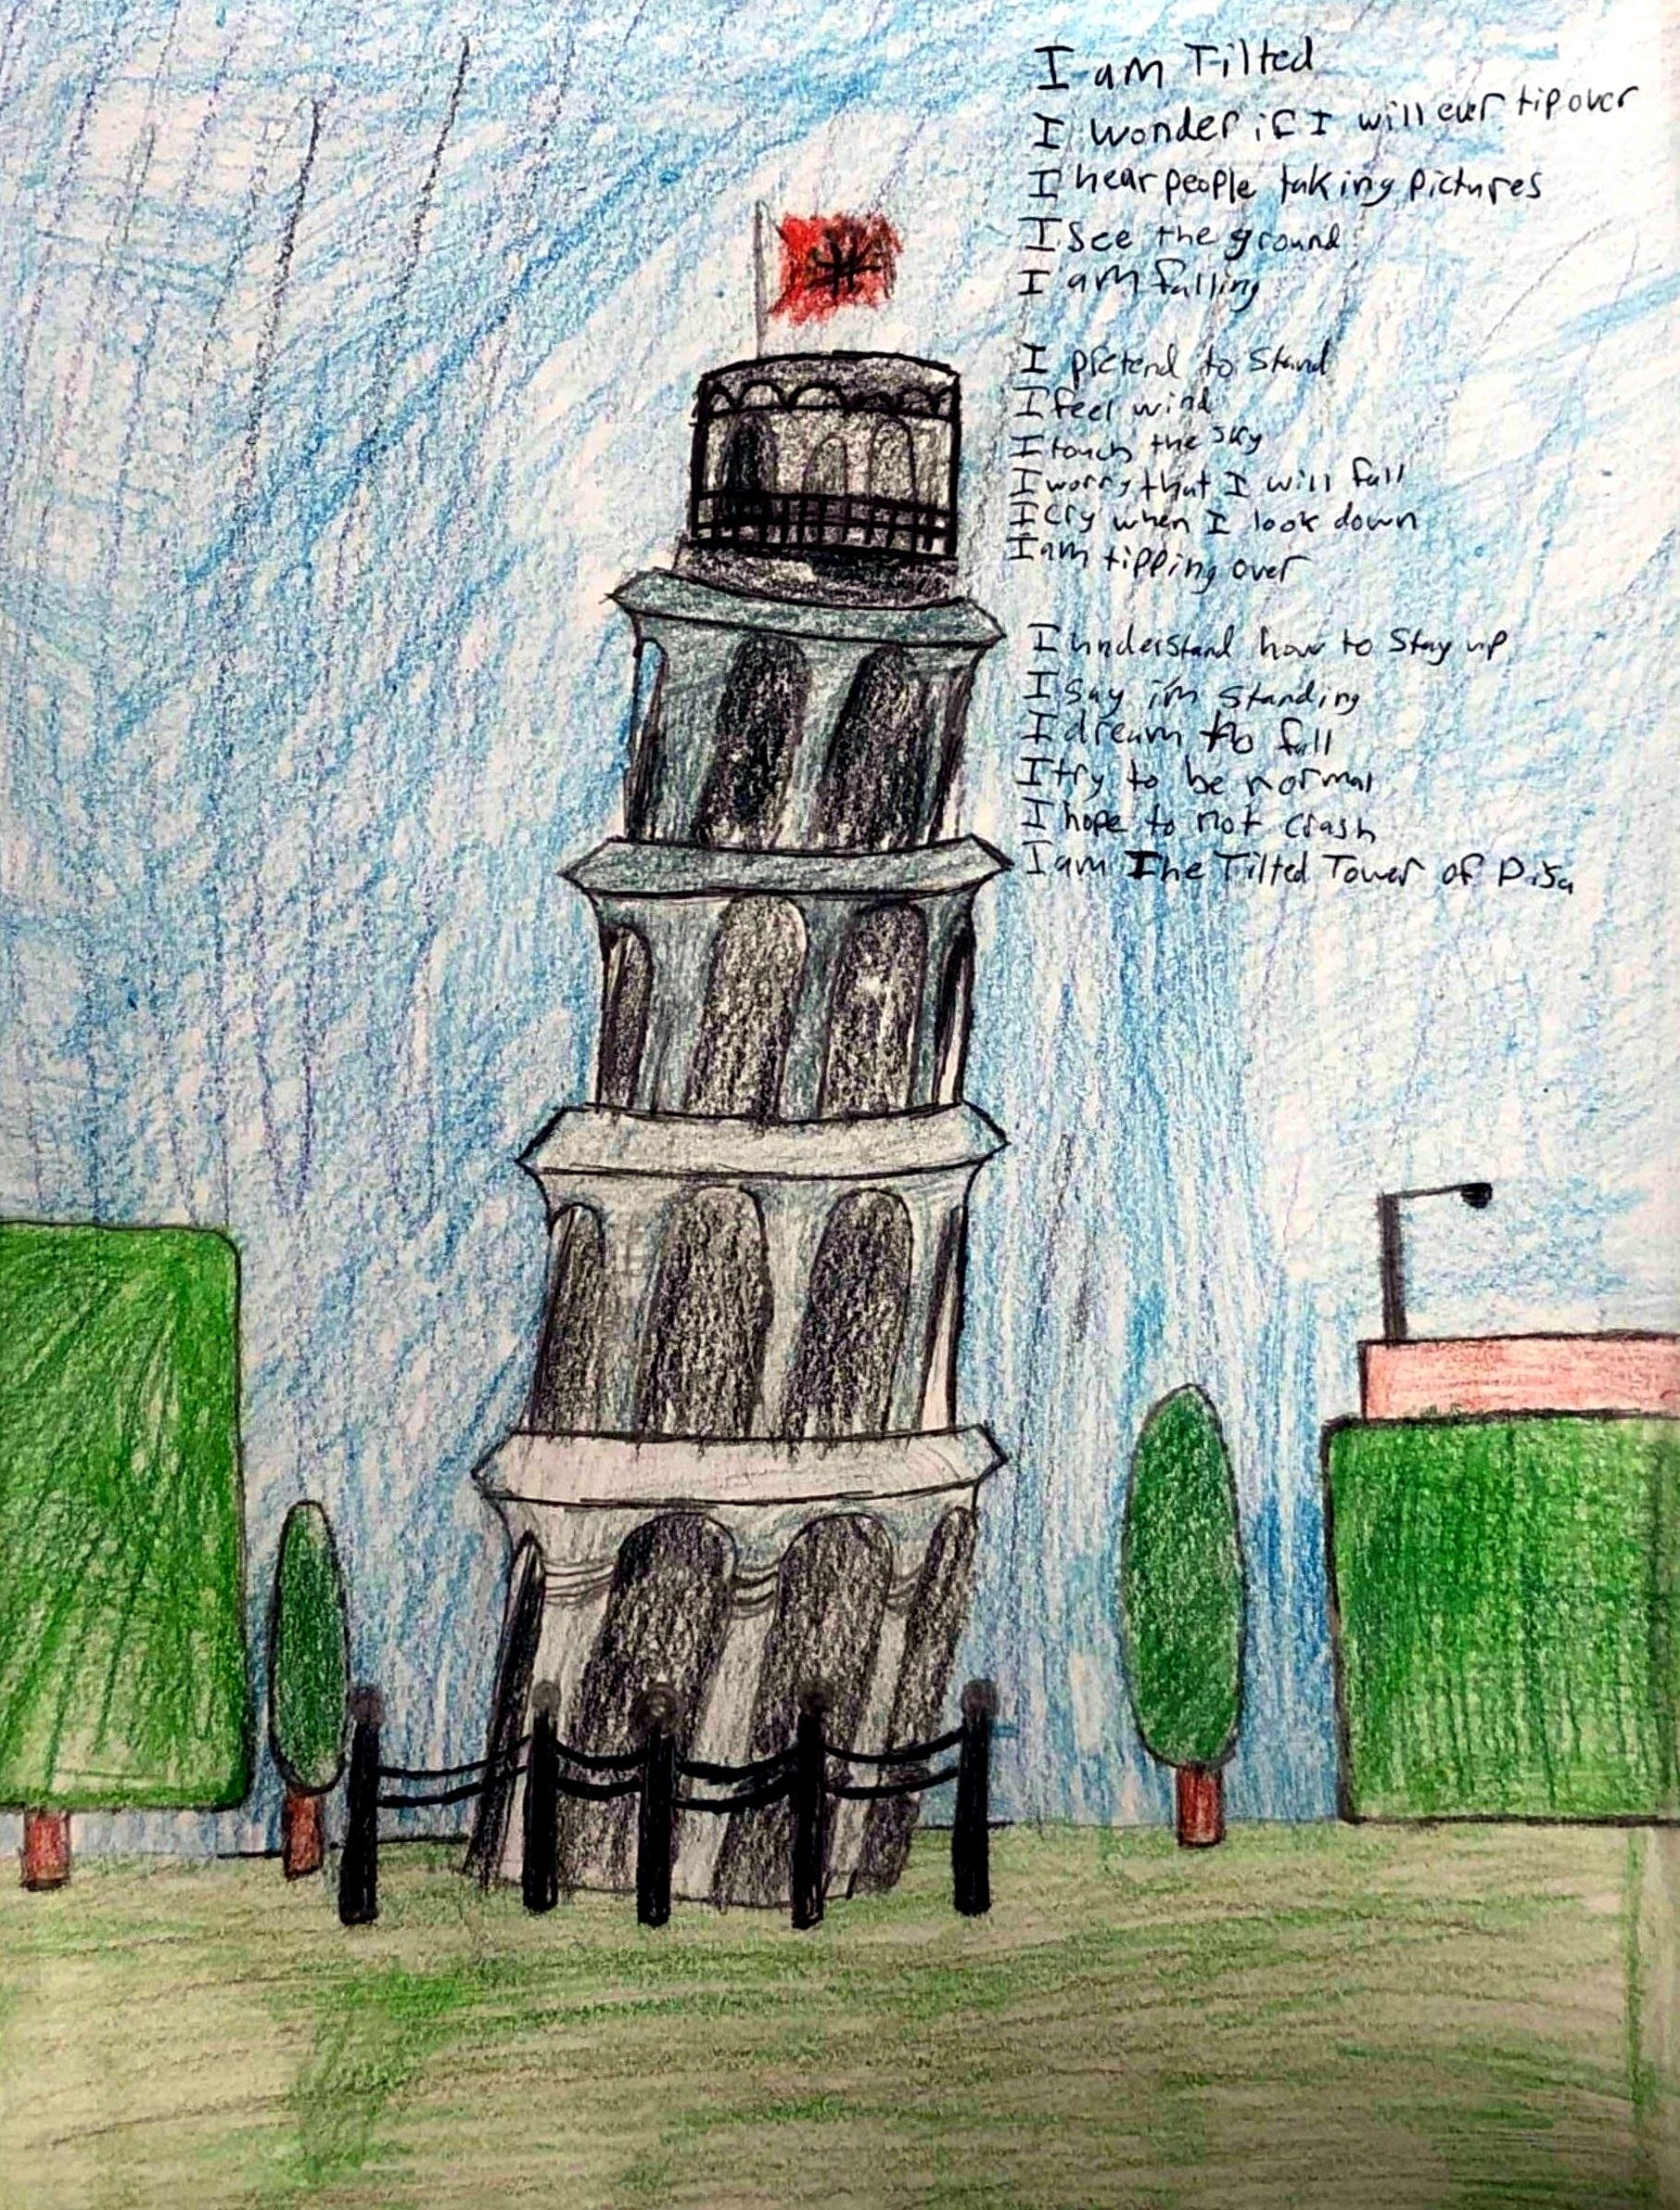 I am Tilted
I wonder if I will ever tip over
I hear people taking pictures
I see the ground
I am falling
I pretend to stand
I feel wind
I touch the sky
I worry that I will fall
I cry when I look down
I am tipping over
I understand how to stay up
I say i'm standing
I dream to fall
I try to be normal
I hope to not crash
I am The Tilted Tower of Pisa